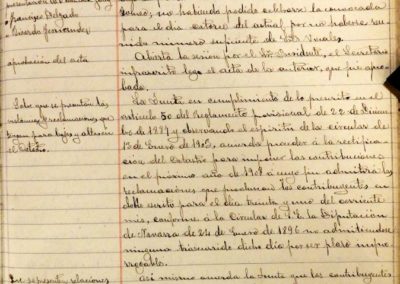 Francisco Delgado
Ricardo Fernandez
aprobación del acta
Sobre que se presenten las
relaciones y reclamaciones que
tengan para bajas y altas en
el Catastro.
Que se presenten relaciones
no habiendo podido celebrarse la convocada
para el día catorce del actual, por no haberse reu-
nido número suficiente de Sres. Vocales.
Abierta la sesión por el Sr. Presidente, el Secretario
infrascrito leyó el acta de la anterior, que fué apro-
bada.
La Junta en cumplimiento de lo prescrito en el
artículo 50 del Reglamento provisional de 22 de Diciem-
bre de 1887 y observando el espíritu de la circular de
13 de Enero de 1903, acuerda proceder á la rectifica-
ción del Catastro para imponer las contribuciones
en el próximo año de 1908 á cuyo fin admitirá las
reclamaciones que produzcan los contribuyentes en
doble escrito para el día treinta y uno del corriente
mes, conforme á la Circular de S.E. la Diputación
de Navarra de 24 de Enero de 1896 no admitiéndose
ninguna trascurrido dicho día por ser plazo impro-
rrogable.
Asi mismo acuerda la Junta que los contribuyentes